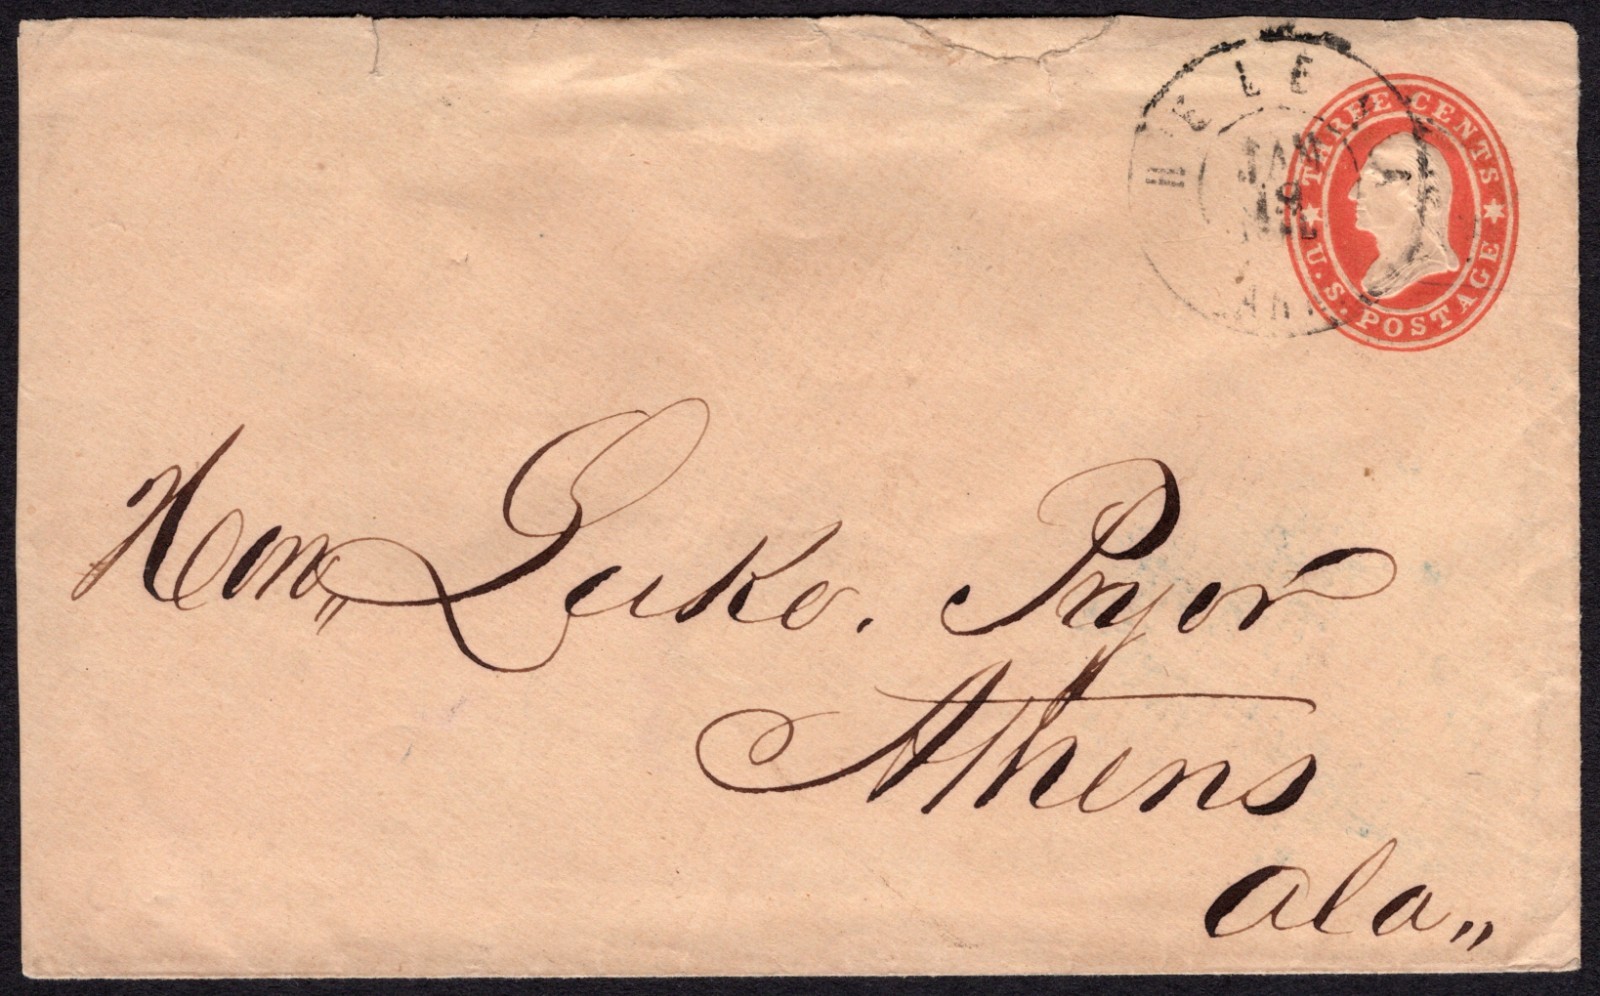 HELE
JAN
19
ARK
THREE CENTS
U.S. POSTAGE
Hon,, Luke. Pryor
Athens
Ala,,